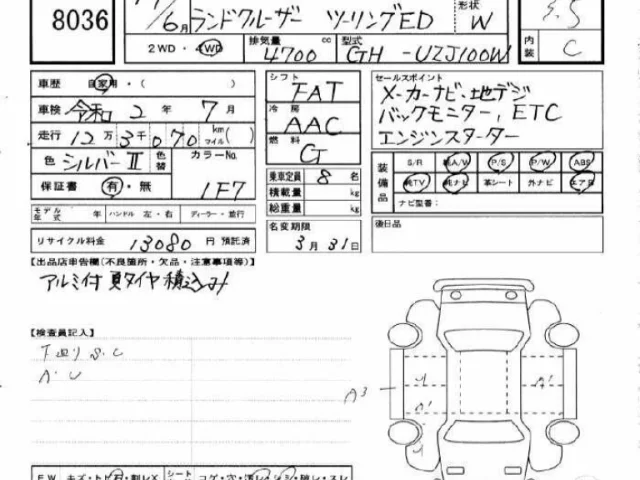 8036
6月
ランドクルーザー ツーリングED
形状 W
3.5
2WD・4WD
排気量 4700 cc
型式 GH -UZJ100W
内装 C
車歴 自家用・( )
車検 令和 2 年 7 月
走行 12万3千070 km マイル ( )
色 シルバーⅡ 色替 カラーNo. 1F7
保証書 有・無
モデル年式 年 ハンドル 左・右 ディーラー・並行
リサイクル料金 13080 円 預託済
シフト FAT
冷房 AAC
燃料 G
乗車定員 8 名
積載量 kg
総重量 kg
名変期限
3月31日
セールスポイント
メーカーナビ・地デジ
バックモニター, ETC
エンジンスターター
装備品 S/R 純A/W P/S P/W ABS
純TV 純ナビ 革シート 外ナビ エアB
ナビ型番:
後日品
【出品店申告欄(不良箇所・欠品・注意事項等)】
アルミ付 夏タイヤ積込み
【検査員記入】
下廻りS.C
A'U
A3
A'
A'
FW キズ・トビ石・割レX シート コゲ・穴・汚レ・シミ・破レ・スレ